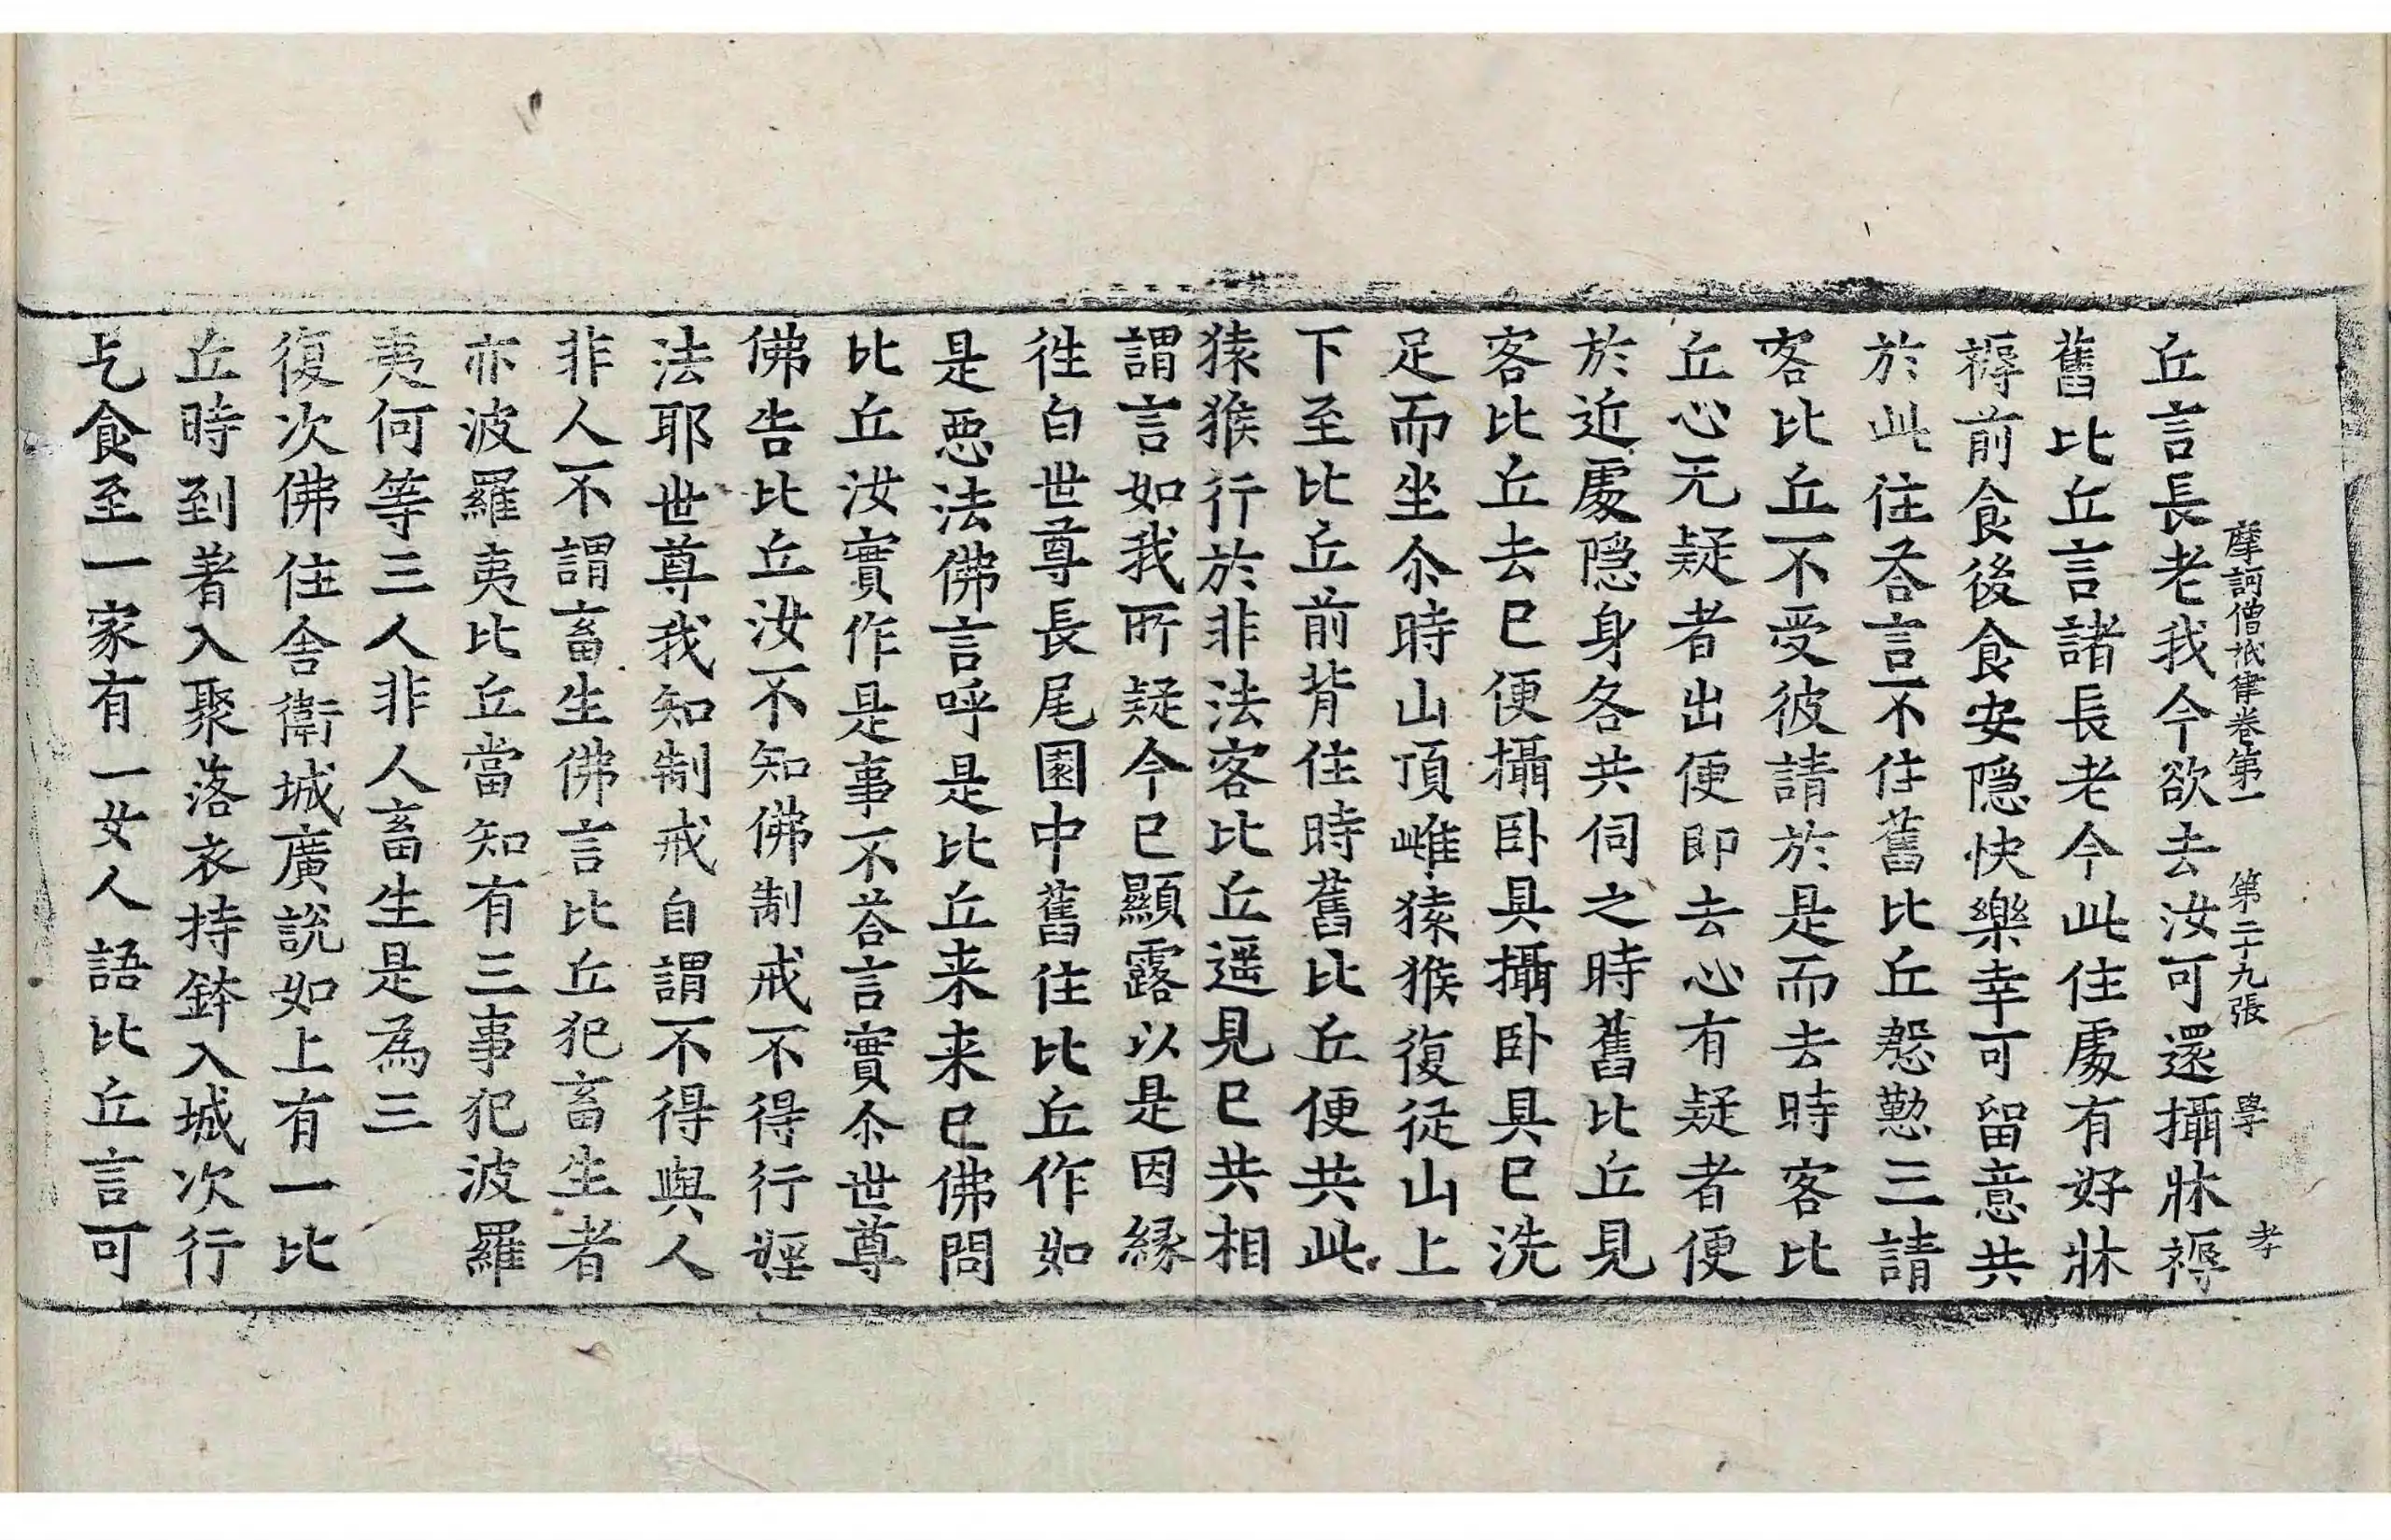 摩訶僧祇律卷第一　第二十九張　學　孝
丘言長老我今欲去汝可還攝牀褥
舊比丘言諸長老今此住處有好牀
褥前食後食安隱快樂幸可留意共
於此住荅言不住舊比丘慇懃三請
客比丘不受彼請於是而去時客比
丘心无疑者出便即去心有疑者便
於近處隱身各共伺之時舊比丘見
客比丘去已便攝卧具攝卧具已洗
足而坐尒時山頂雌猿猴復從山上
下至比丘前背住時舊比丘便共此
猿猴行於非法客比丘遥見已共相
謂言如我所疑今已顯露以是因緣
徃白世尊長尾園中舊住比丘作如
是惡法佛言呼是比丘来来已佛問
比丘汝實作是事不荅言實尒世尊
佛告比丘汝不知佛制戒不得行婬
法耶世尊我知制戒自謂不得與人
非人不謂畜生佛言比丘犯畜生者
亦波羅夷比丘當知有三事犯波羅
夷何等三人非人畜生是為三
復次佛住舍衛城廣說如上有一比
丘時到著入聚落衣持鉢入城次行
乞食至一家有一女人語比丘言可